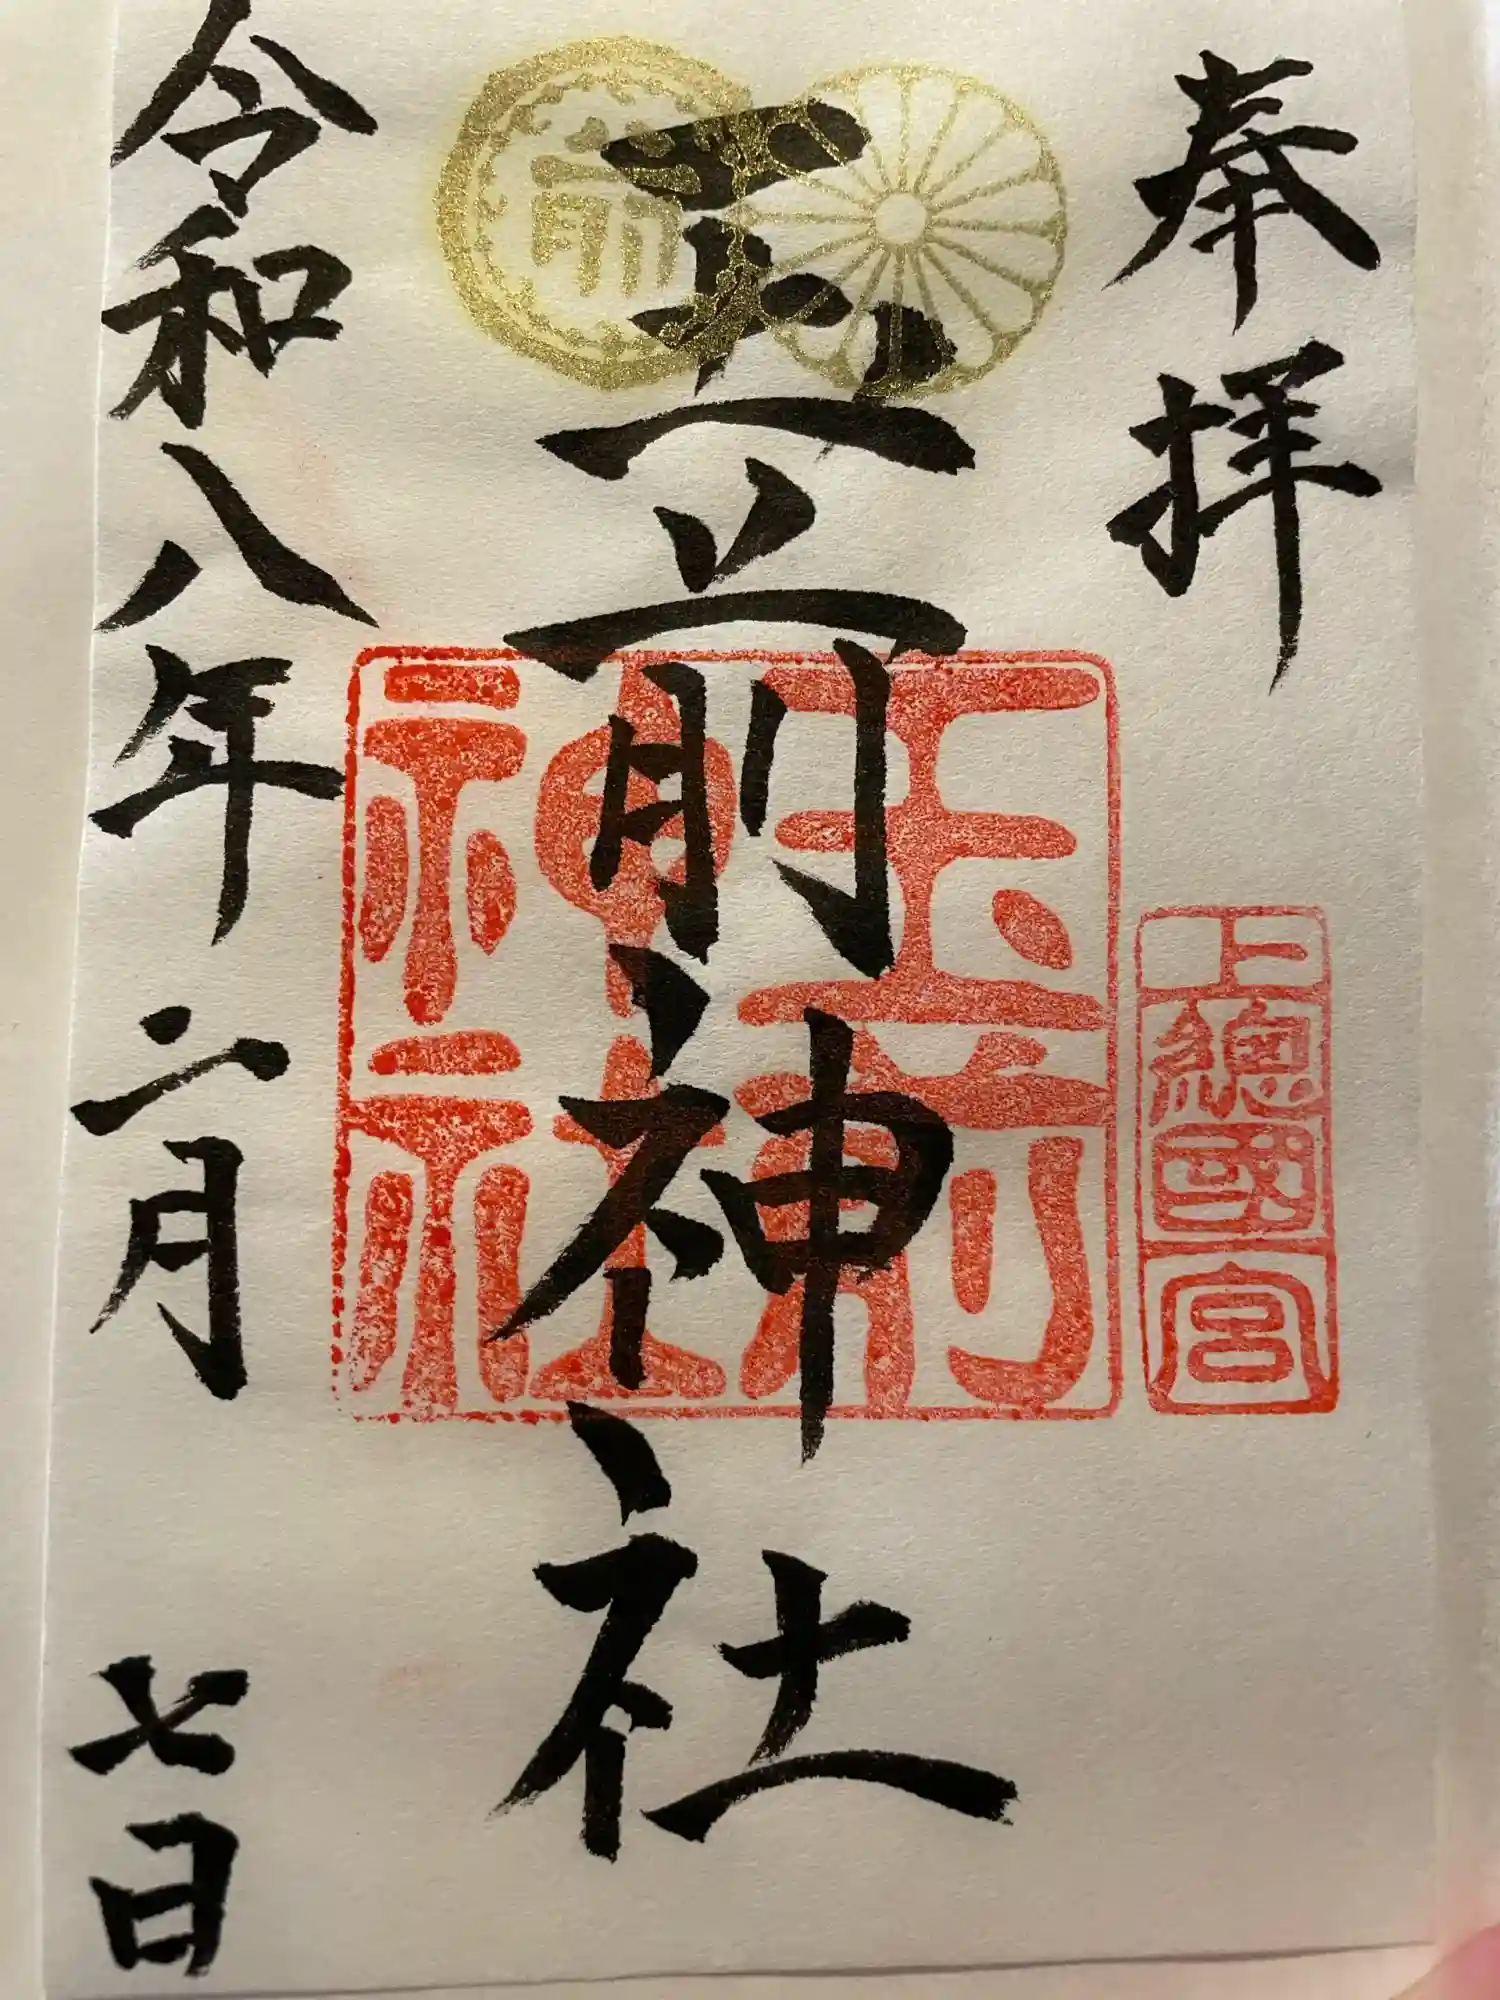 奉拝
上總國一宮
玉前神社
玉前神社
前
令和八年二月七日